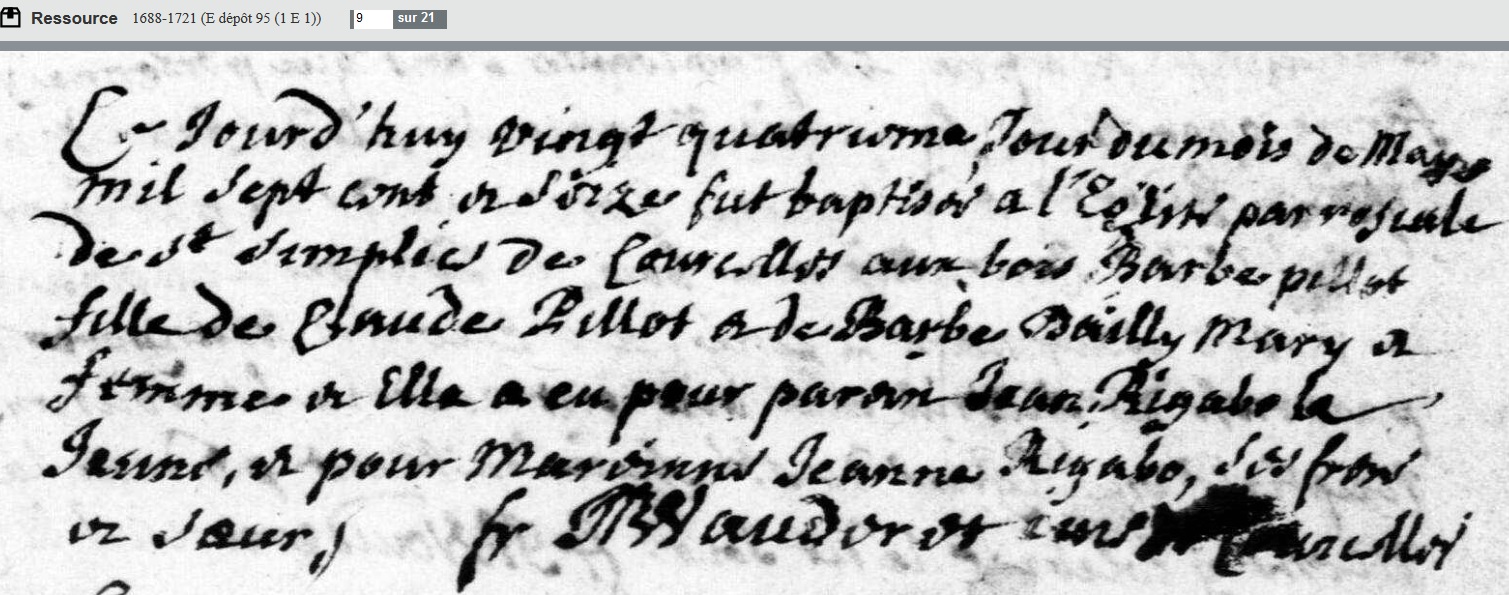 Ressource 1688-1721 (E dépôt 95 (1 E 1)) 9 sur 21
Ce Jourd'huy vingt quatrieme Jour du mois de Mars
mil sept cent et seize fut baptisée a l'Eglise parrosciale
de st simplice de Courcelles aux bois Barbe pillot
fille de Claude Pillot et de Barbe Bailly Mary et
femme et Elle a eu pour parain Jean Rigabo le
Jeune, et pour Marainne Jeanne Rigabo, ses frere
et sœur,
fr
Courcelles